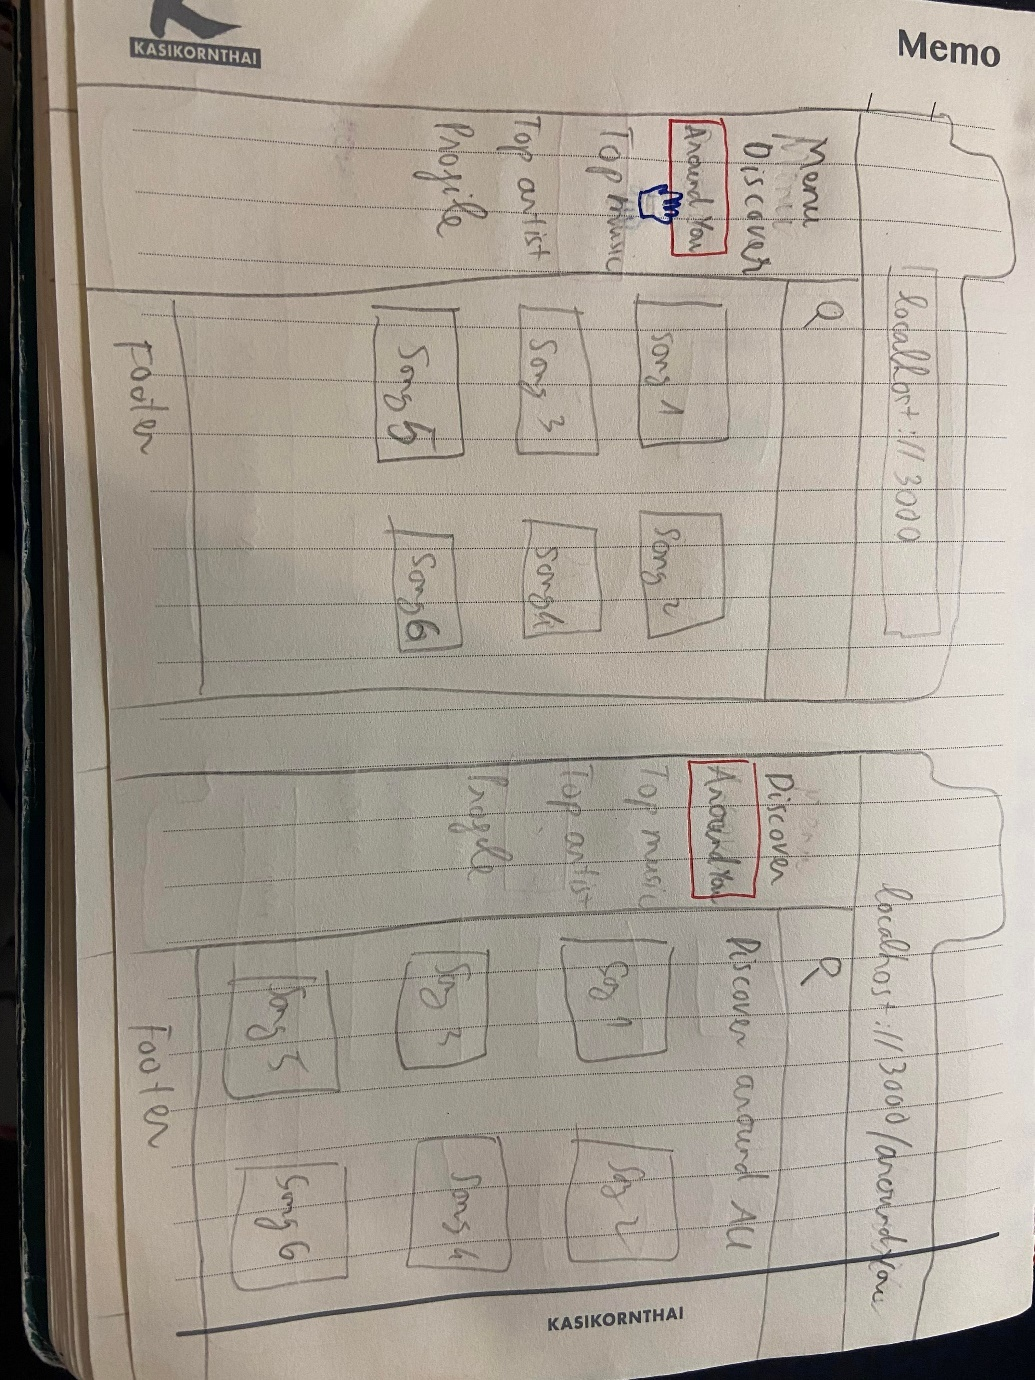 Memo
KASIKORNTHAI
localhost://3000
Menu
Discover
Around You
Top music
Top artist
Profile
Song 1
Song 2
Song 3
Song 4
Song 5
Song 6
Footer
localhost://3000/aroundYou
Discover
Around You
Top music
Top artist
Profile
Discover around All
Sog 1
Sog 2
Song 3
Song 4
Song 5
Song 6
Footer
KASIKORNTHAI